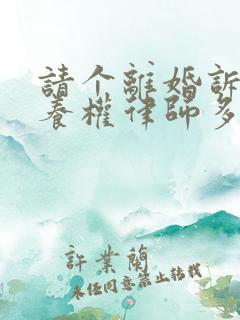 請个離婚訴
養權律師多
許業蘭
未经同意禁止转载